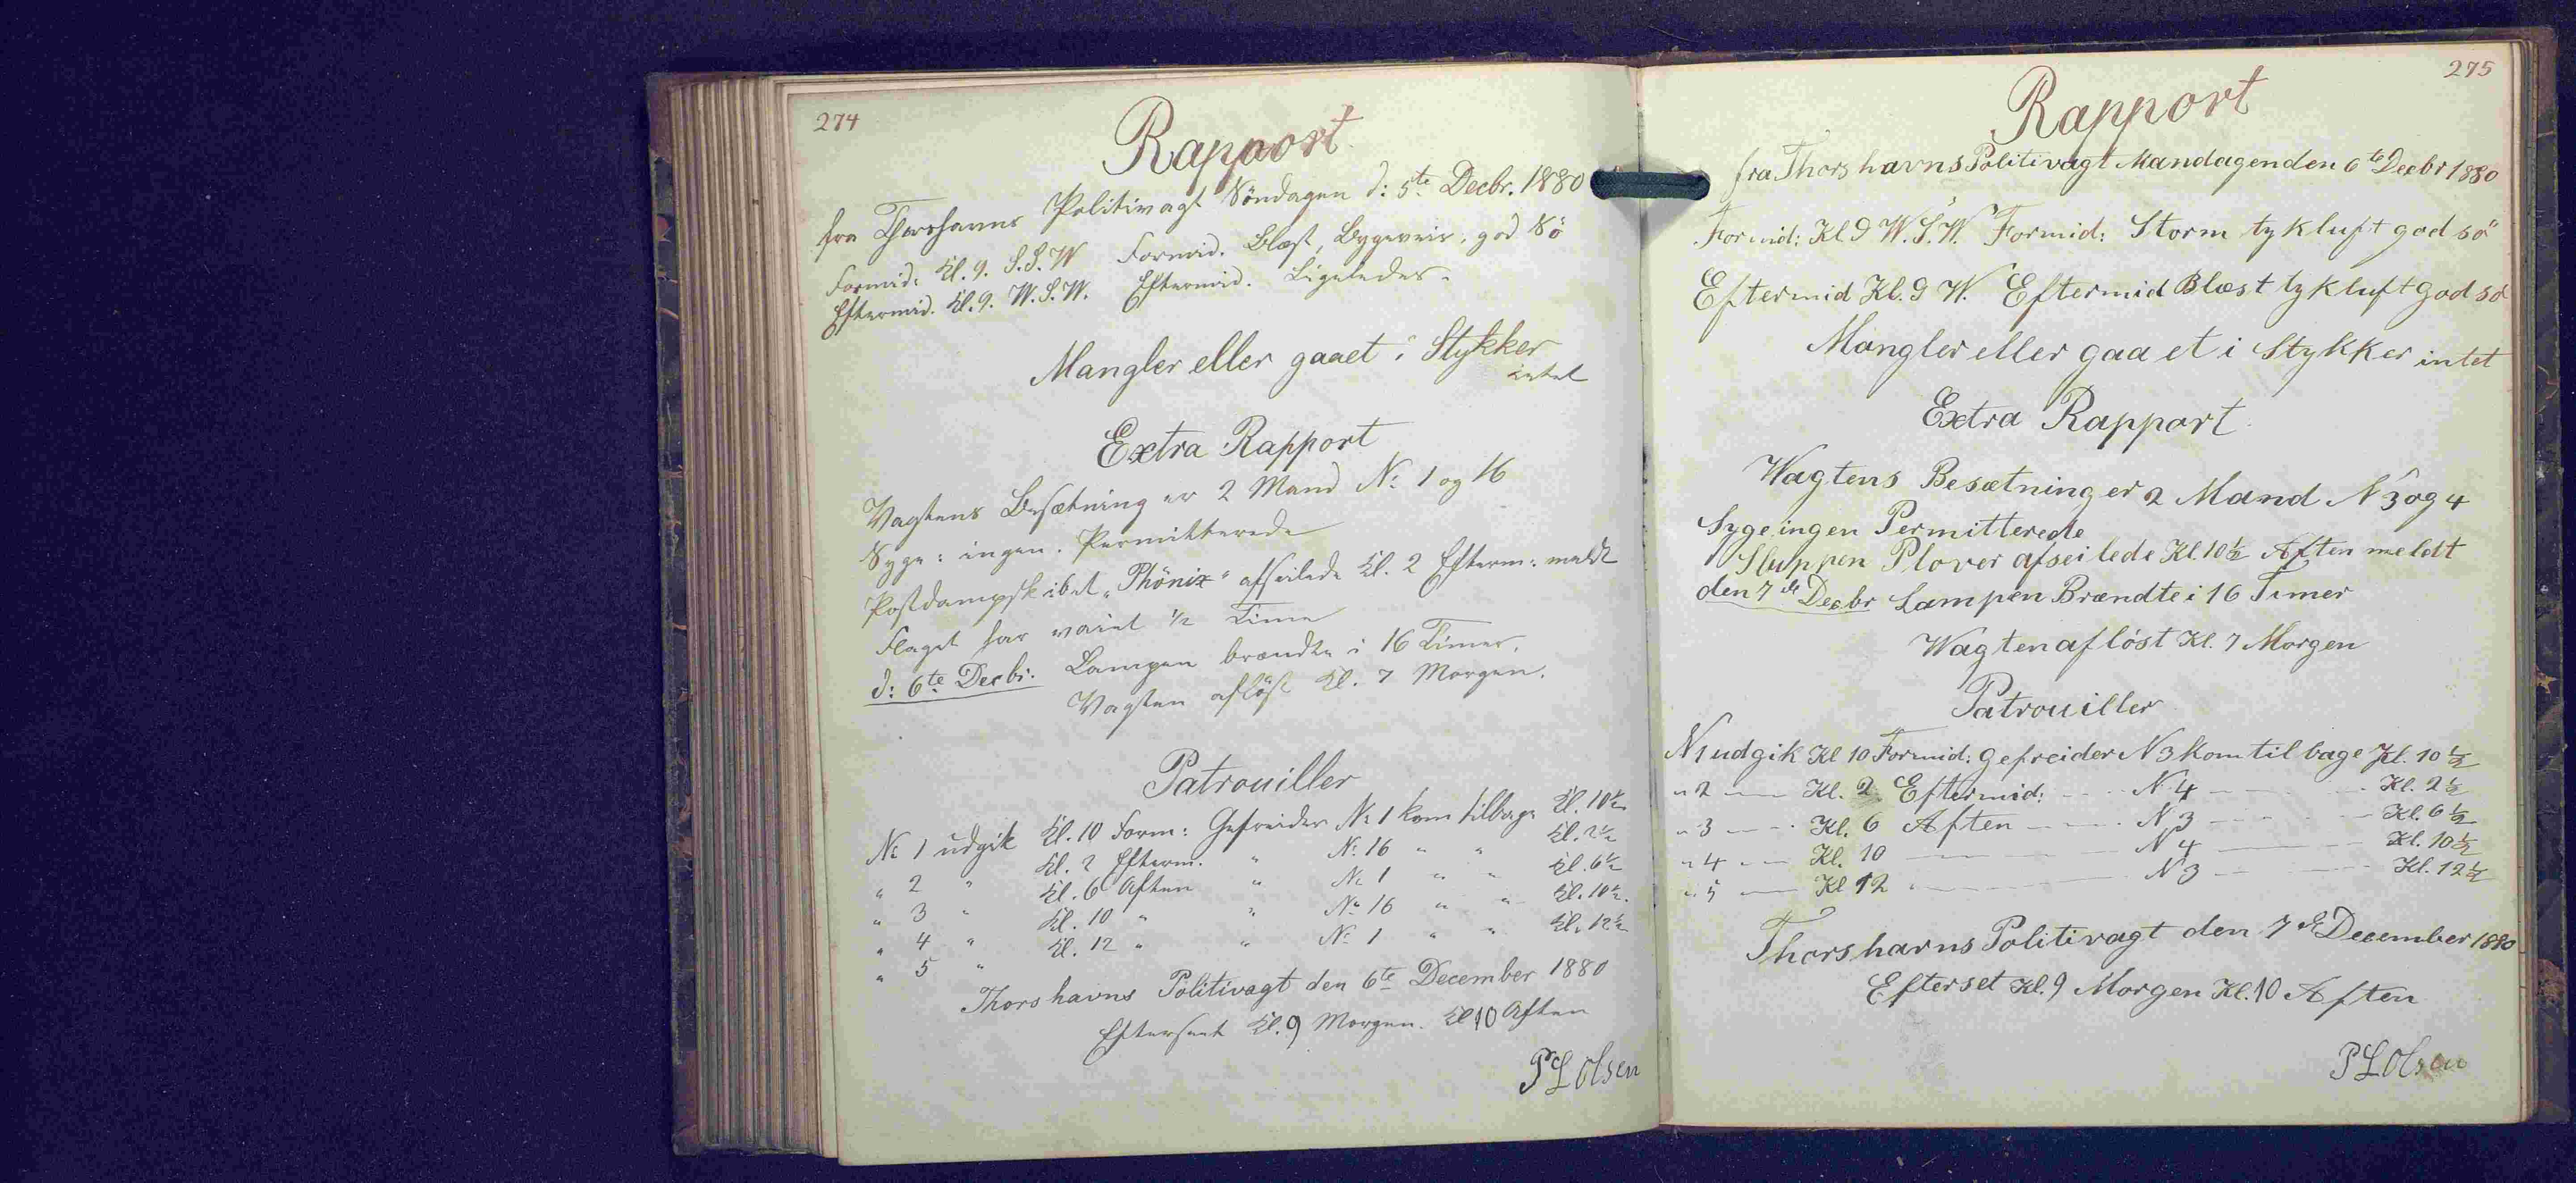 274
Rapport
fra Thorshavns Politivagt Söndagen d: 5te Decbr. 1880
Formid: Kl. 9. S.S.W Formid. Blæst, Bygeveir, god Sö
Eftermid. Kl. 9. W.S.W. Eftermid. Ligeledes.
Mangler eller gaaet i Stykker
intet
Extra Rapport
Vagtens Besætning er 2 Mand No 1 og 16
Syge: ingen. Permitterede
Postdampskibet „Phönix" afseilede Kl. 2 Efterm: meldt
Flaget har vaiet 1/2 Time
d: 6te Decbr. Lampen brændte i 16 Timer.
Vagten aflöst Kl. 7 Morgen.
Patrouiller
No 1 udgik Kl. 10 Form: Gefreider No 1 kom tilbage Kl. 10½
" 2 " Kl. 2 Efterm. " No 16 " " Kl. 2½
" 3 " Kl. 6 Aften " No 1 " " Kl. 6½
" 4 " Kl. 10 " " No 16 " " Kl. 10½.
" 5 " Kl. 12 " " No 1 " " Kl. 12½
Thorshavns Politivagt den 6te December 1880
Efterseet Kl. 9 Morgen. Kl 10 Aften
P L Olsen
275
Rapport
fra Thorshavns Politivagt Mandagen den 6te Decbr 1880
Formid: Kl 9 W.S.W. Formid: Storm tykluft god sö
Eftermid Kl. 9 W. Eftermid Blæst tykluft god sö
Mangler eller gaaet i Stykker intet
Extra Rapport
Wagtens Besætning er 2 Mand N 3 og 4
Syge ingen Permitterede
Sluppen Plover afseilede Kl. 10½ Aften meldt
den 7de Decbr Lampen Brændte i 16 Timer
Wagten aflöst Kl. 7 Morgen
Patrouiller
N 1 udgik Kl 10 Formid: Gefreider N 3 kom tilbage Kl. 10½
" 2 — Kl. 2 Eftermid: — N 4 — Kl. 2½
" 3 — Kl. 6 Aften — N 3 — Kl. 6½
" 4 — Kl. 10 — N 4 — Kl. 10½
" 5 — Kl 12 — N 3 — Kl. 12½
Thorshavns Politivagt den 7de December 1880
Efterset Kl. 9 Morgen Kl. 10 Aften
P L Olsen